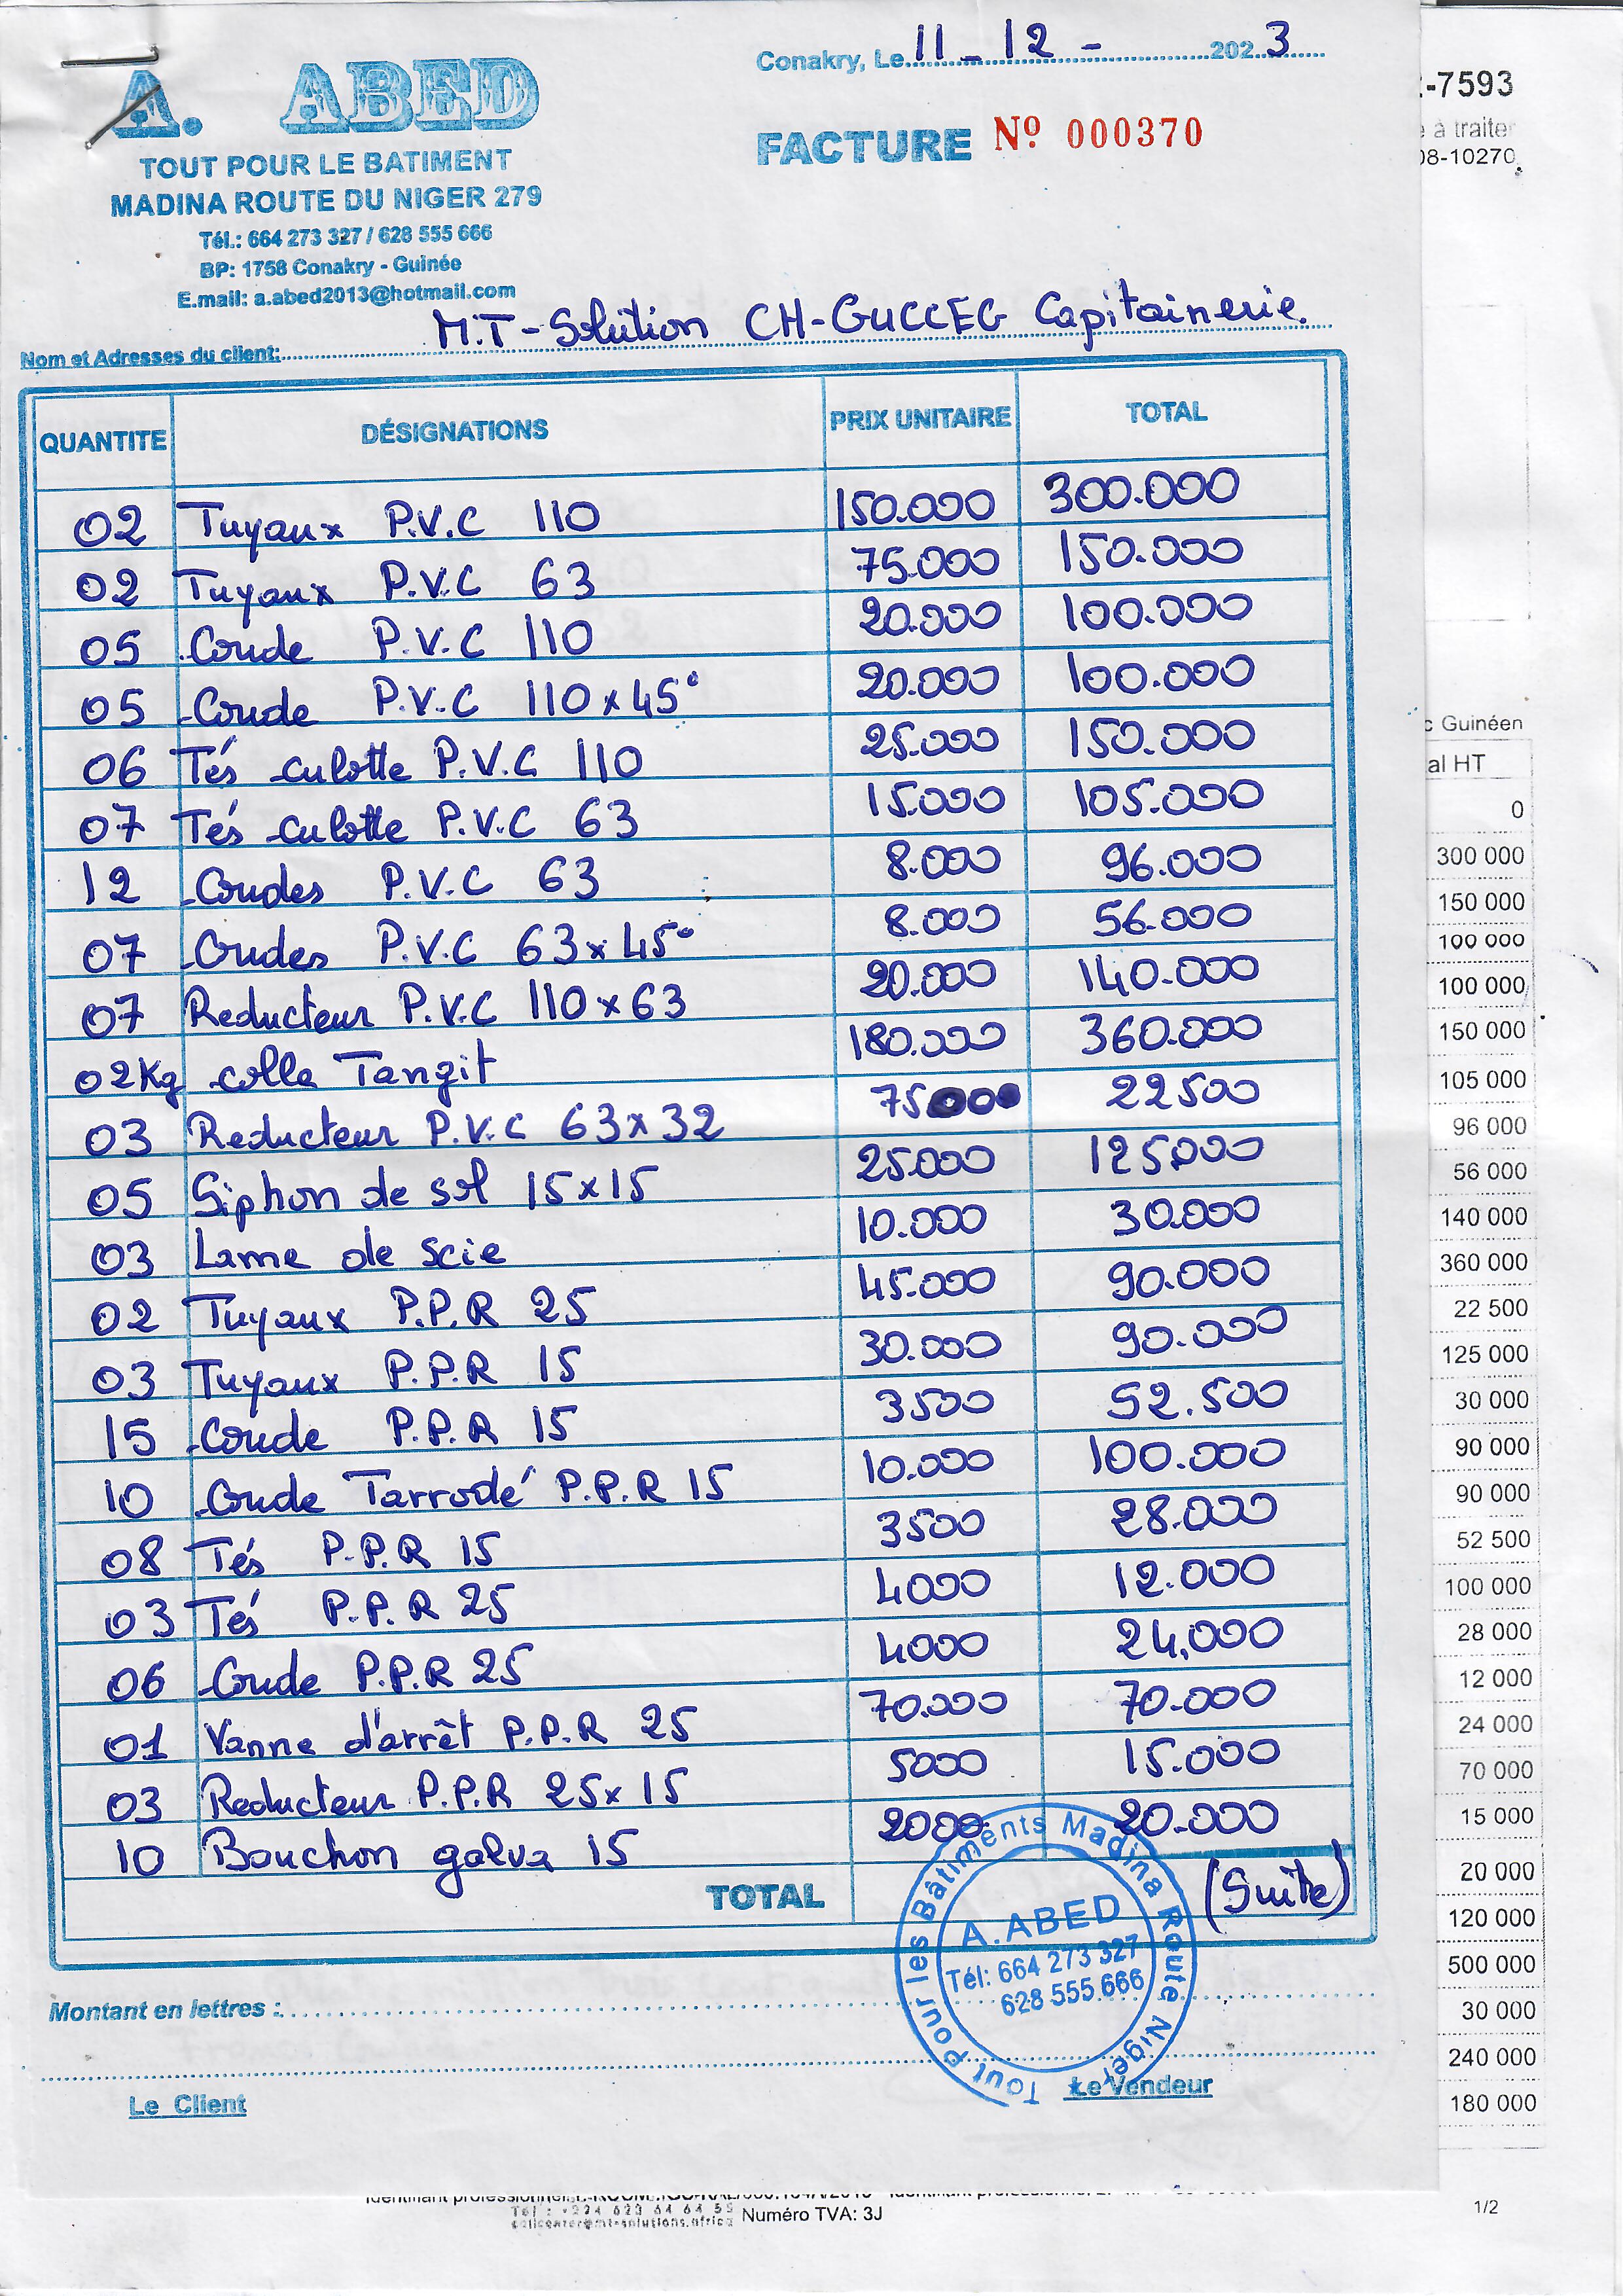 Conakry, Le 11 - 12 - 2023
A. ABED
FACTURE Nº 000370
TOUT POUR LE BATIMENT
MADINA ROUTE DU NIGER 279
Tél.: 664 273 327 / 628 555 666
BP: 1758 Conakry - Guinée
E.mail: a.abed2013@hotmail.com
Nom et Adresses du client: M.T-Solution CH-GUCCEG Capitainerie.
QUANTITE DÉSIGNATIONS PRIX UNITAIRE TOTAL
02 Tuyaux P.V.C 110 150.000 300.000
02 Tuyaux P.V.C 63 75.000 150.000
05 Coude P.V.C 110 20.000 100.000
05 Coude P.V.C 110 x 45° 20.000 100.000
06 Tés culotte P.V.C 110 25.000 150.000
07 Tés culotte P.V.C 63 15.000 105.000
12 Coudes P.V.C 63 8.000 96.000
07 Coudes P.V.C 63 x 45° 8.000 56.000
07 Reducteur P.V.C 110 x 63 20.000 140.000
02Kg colle Tangit 180.000 360.000
03 Reducteur P.V.C 63 x 32 7500 22500
05 Siphon de sol 15 x 15 25.000 125.000
03 Lame de scie 10.000 30.000
02 Tuyaux P.P.R 25 45.000 90.000
03 Tuyaux P.P.R 15 30.000 90.000
15 Coude P.P.R 15 3500 52.500
10 Coude Tarrodé P.P.R 15 10.000 100.000
08 Tés P.P.R 15 3500 28.000
03 Tés P.P.R 25 4000 12.000
06 Coude P.P.R 25 4000 24,000
01 Vanne d'arrêt P.P.R 25 70.000 70.000
03 Reducteur P.P.R 25 x 15 5000 15.000
10 Bouchon galva 15 2000 20.000
TOTAL (Suite)
Tout Pour les Bâtiments Madina Route Niger
A. ABED
Tél: 664 273 327
628 555 666
Montant en lettres :
Le Client Le Vendeur
-7593
à traiter
08-10270
c Guinéen
al HT
0
300 000
150 000
100 000
100 000
150 000
105 000
96 000
56 000
140 000
360 000
22 500
125 000
30 000
90 000
90 000
52 500
100 000
28 000
12 000
24 000
70 000
15 000
20 000
120 000
500 000
30 000
240 000
180 000
Tél : +224 623 64 64 55
callcenter@mt-solutions.africa Numéro TVA: 3J
1/2